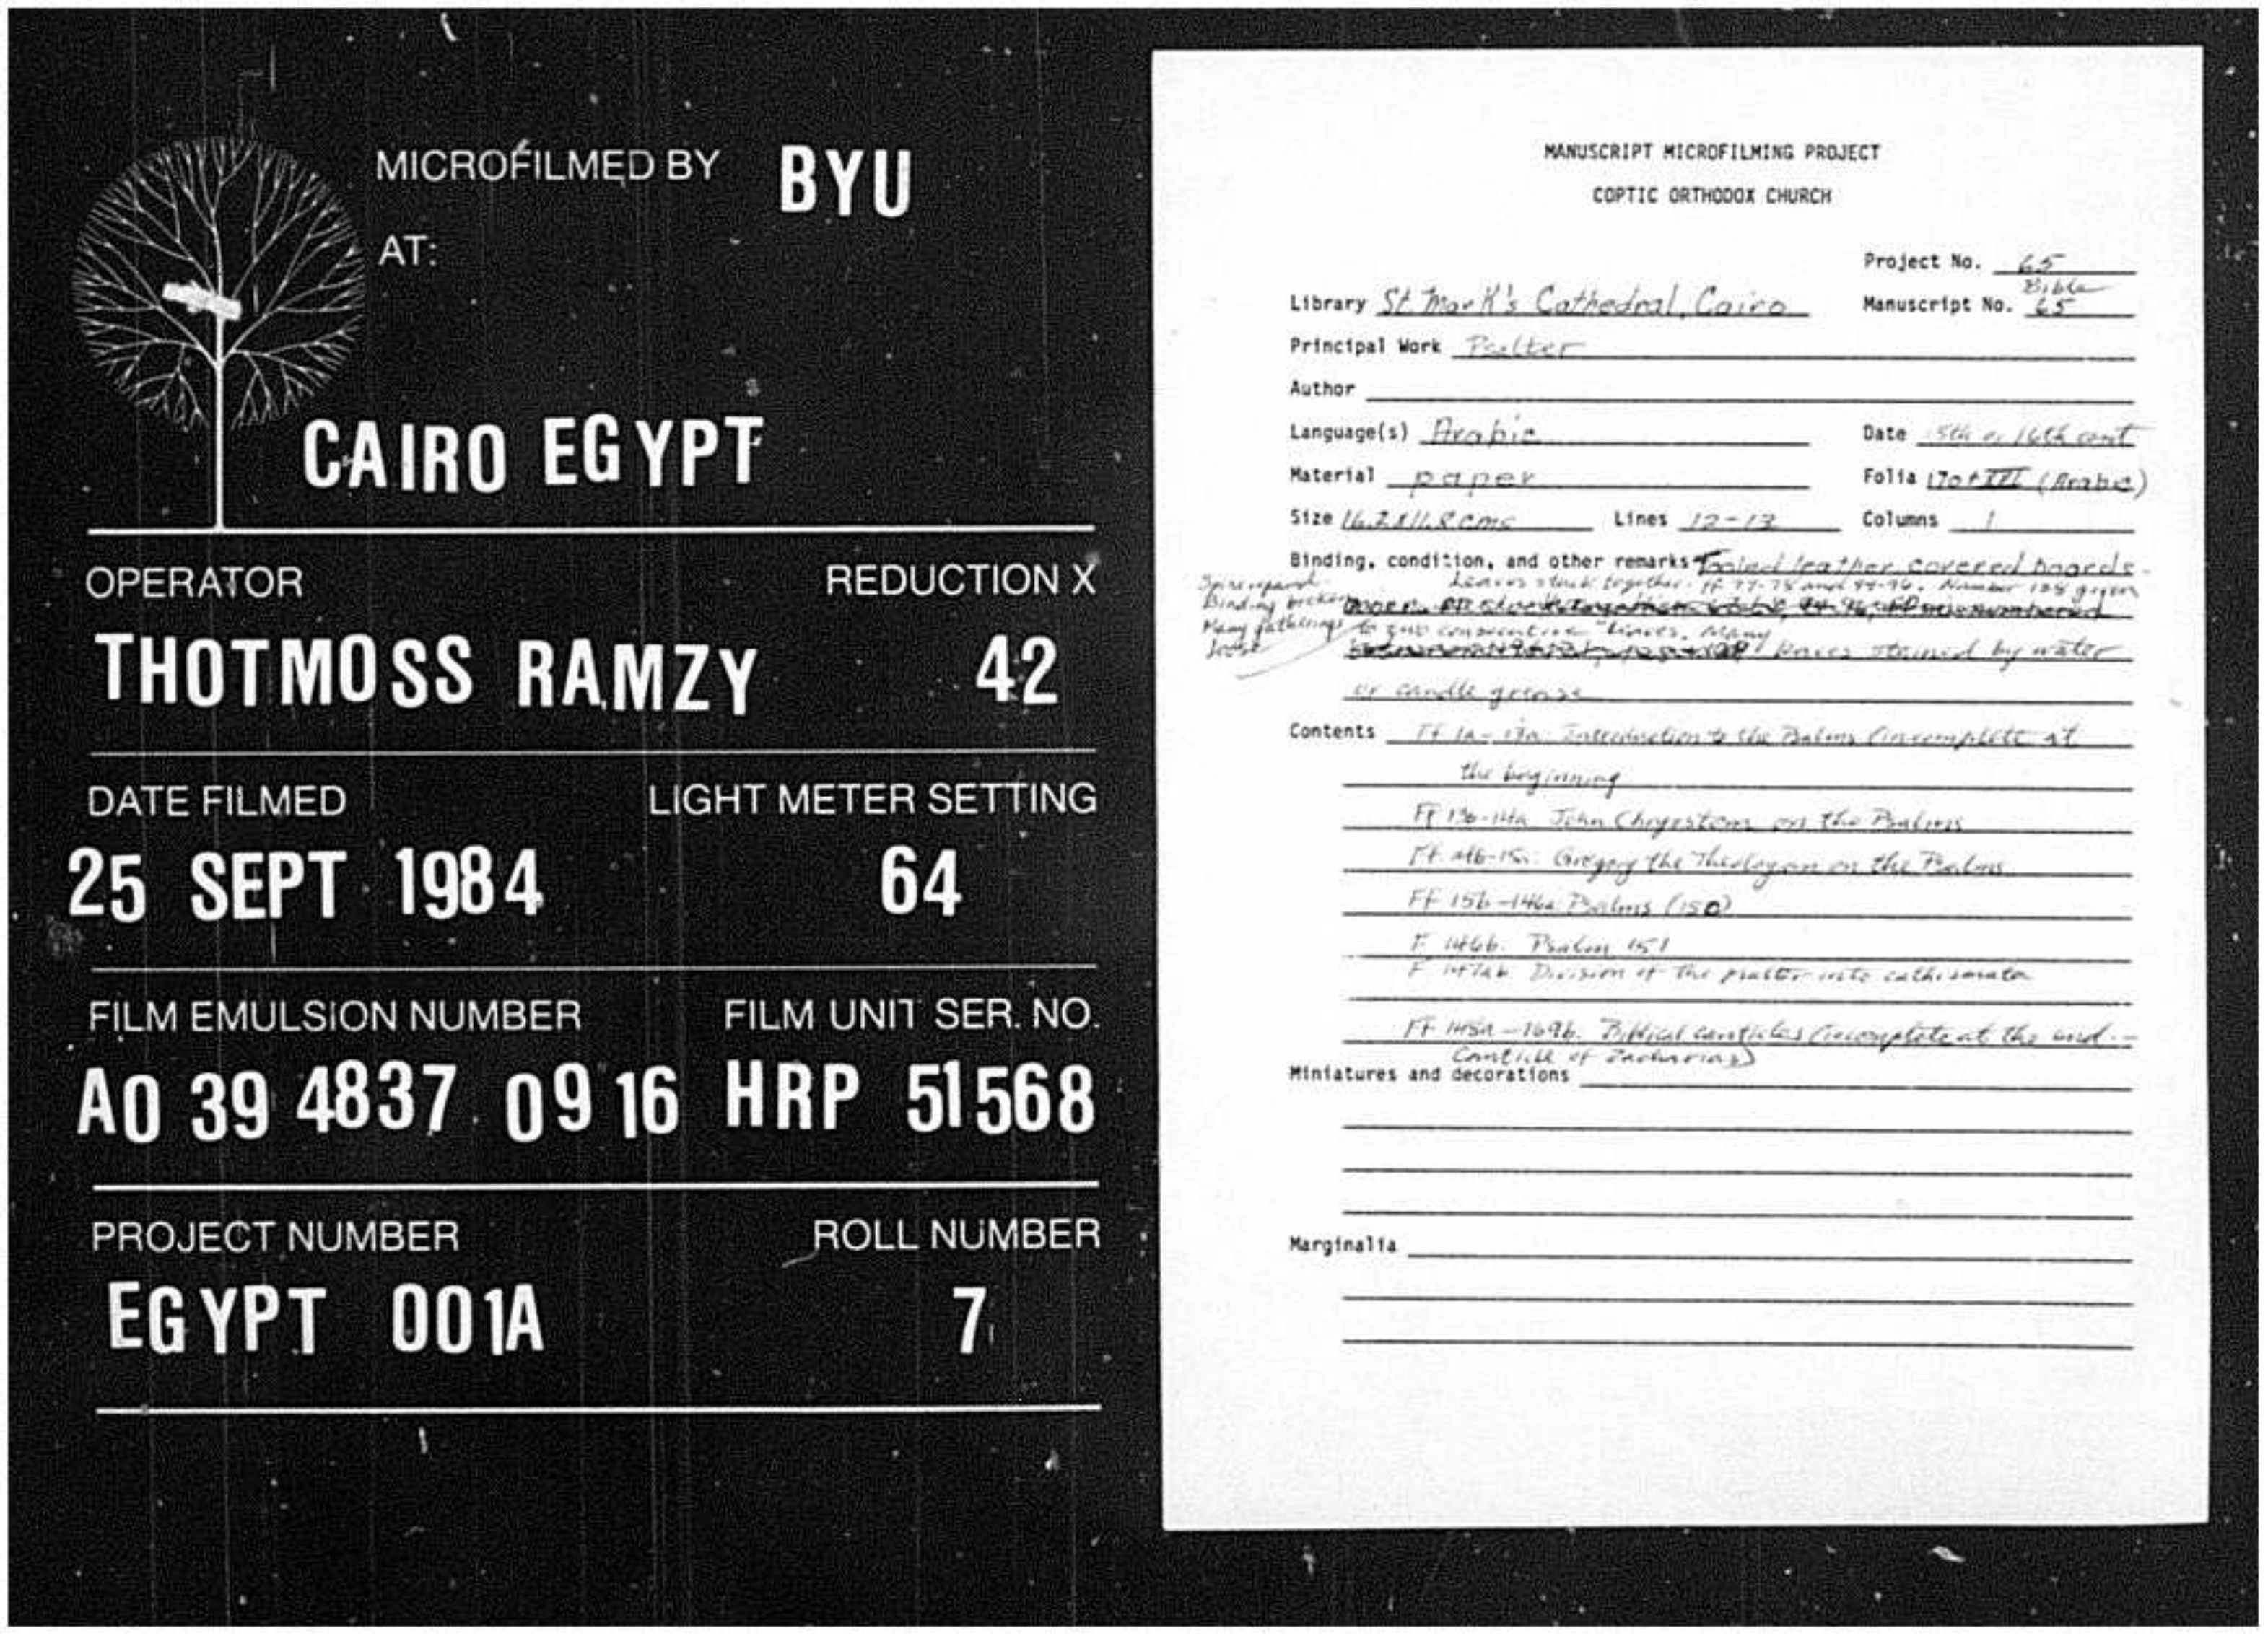 MICROFILMED BY BYU
AT:
CAIRO EGYPT
OPERATOR REDUCTION X
THOTMOSS RAMZY 42
DATE FILMED LIGHT METER SETTING
25 SEPT 1984 64
FILM EMULSION NUMBER FILM UNIT SER. NO.
A0 39 4837 09 16 HRP 51568
PROJECT NUMBER ROLL NUMBER
EGYPT 001A 7
MANUSCRIPT MICROFILMING PROJECT
COPTIC ORTHODOX CHURCH
Project No. 65
Bible
Library St. Mark's Cathedral, Cairo Manuscript No. 65
Principal Work Psalter
Author
Language(s) Arabic Date 15th or 16th cent
Material paper Folia 170 + III (Arabic)
Size 16.2 x 11.8 cms Lines 12-13 Columns 1
Binding, condition, and other remarks Tooled leather covered boards.
Spine repaired
Binding broken
Many gatherings
loose
Leaves stuck together. ff 77-78 and 94-96. Number 128 given
to two consecutive leaves. Many
leaves stained by water
or candle grease
Contents Ff 1a-13a: Introduction to the Psalms (incomplete at
the beginning
Ff 13b-14a John Chrysostom on the Psalms
Ff. 14b-15a: Gregory the Theologian on the Psalms
Ff 15b-146a: Psalms (150)
F 146b. Psalm 151
F 147ab Division of the psalter into cathismata
Ff 148a-169b. Biblical canticles (incomplete at the end --
Canticle of Zacharias)
Miniatures and decorations
Marginalia